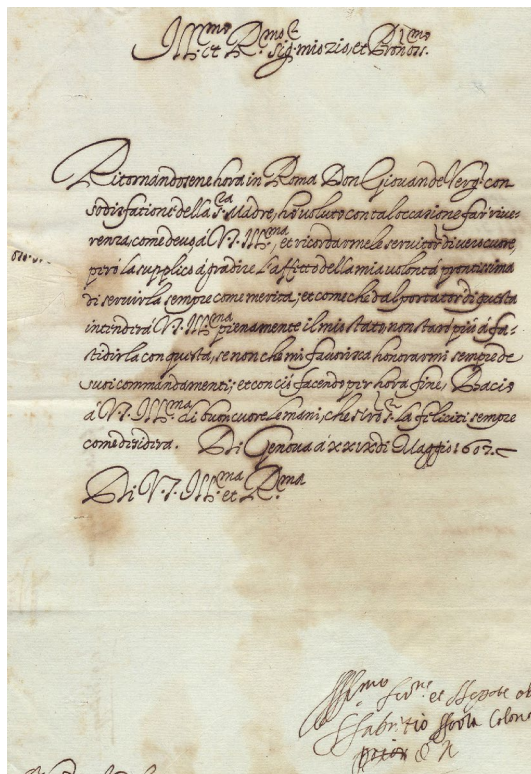 Ill.mo et R.mo Sig.r mio zio, et Pron oss.mo
Ritornandosene hora in Roma Don Giouan de Verg.s con
sodisfatione della s.ra Madre, ho uoluto con tal occasione far riue-
renza, come deuo, á V. S. Ill.ma, et ricordarmele seruitor di uero cuore,
però la supplico á gradire l'affetto della mia uolontà prontissima
di seruirla sempre come merita; et come che dal portator di questa
intenderá V. S. Ill.ma pienamente il mio stato, non starò più á fa-
stidirla con questa, se non che mi fauorisca honorarmi sempre de
suoi commandamenti; et con ciò facendo per hora fine, Bacio
á V. S. Ill.ma di buon cuore le mani, che N'ro S.re la feliciti sempre
come desidera. Di Genoua á XXIX di Maggio 1607.
Di V. S. Ill.ma et R.ma
Ser.re et Nepote
Fabritio Colon